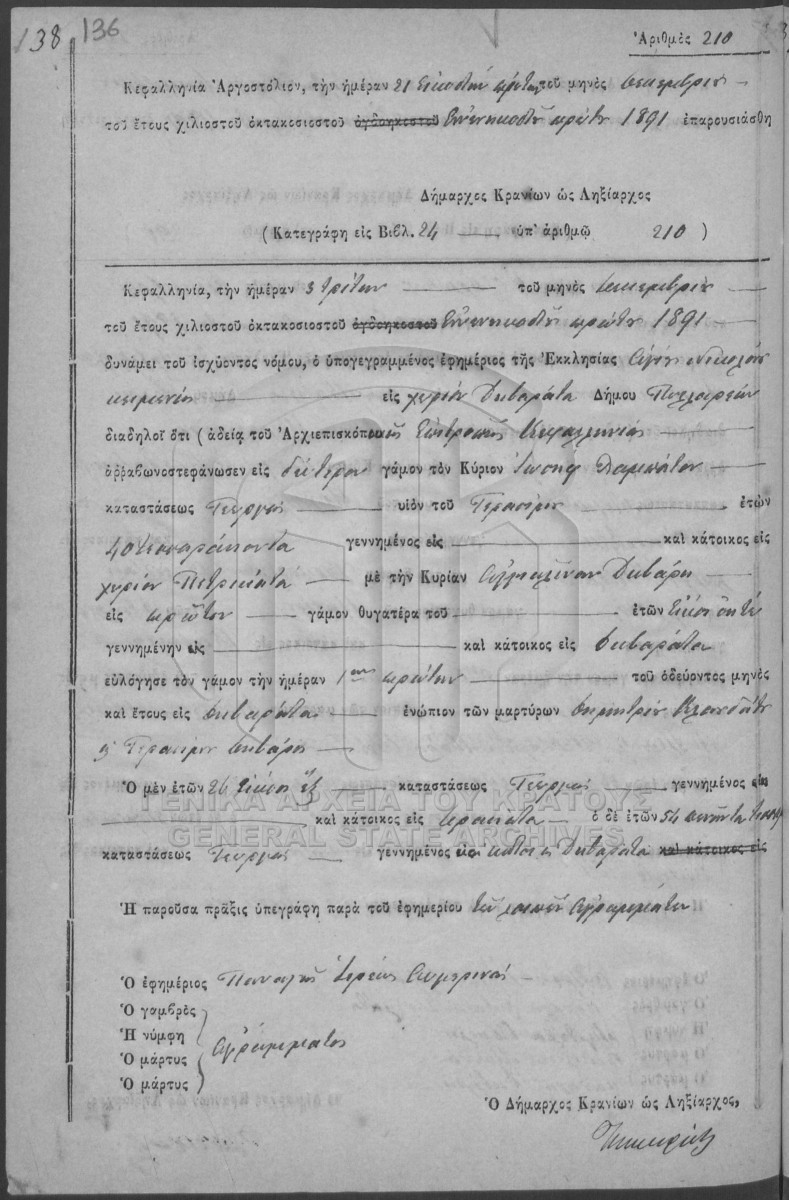 138 136
Ἀριθμὸς 210
Κεφαλληνία Ἀργοστόλιον, τὴν ἡμέραν 21 Εἰκοστὴν πρώτην τοῦ μηνὸς
τοῦ ἔτους χιλιοστοῦ ὀκτακοσιοστοῦ ὀγδοηκοστοῦ Ἐννενηκοστοῦ πρώτου 1891 ἐπαρουσιάσθη
Δήμαρχος Κρανίων ὡς Ληξίαρχος
(Κατεγράφη εἰς Βιβλ. 24 ὑπ' ἀριθμῷ 210 )
Κεφαλληνία, τὴν ἡμέραν 3 τρίτην τοῦ μηνὸς
τοῦ ἔτους χιλιοστοῦ ὀκτακοσιοστοῦ ὀγδοηκοστοῦ Ἐννενηκοστοῦ πρώτου 1891
δυνάμει τοῦ ἰσχύοντος νόμου, ὁ ὑπογεγραμμένος ἐφημέριος τῆς Ἐκκλησίας Ἁγίου Νικολάου
κειμένης εἰς χωρίον Διβαράτα Δήμου Πυλλαρέων
διαδηλοῖ ὅτι (ἀδείᾳ τοῦ Ἀρχιεπισκοπικῆς Ἐπιτροπῆς Κεφαλληνίας
ἀῤῥαβωνοστεφάνωσεν εἰς δεύτερον γάμον τὸν Κύριον Ἰωσὴφ
καταστάσεως Γεωργὸς υἱὸν τοῦ Γερασίμου ἐτῶν
40 τεσσαράκοντα γεννημένος εἰς καὶ κάτοικος εἰς
χωρίον Πετρικάτα μὲ τὴν Κυρίαν Ἀγγελικὴν Διβάρη
εἰς πρῶτον γάμον θυγατέρα τοῦ ἐτῶν εἴκοσι ὀκτώ
γεννημένην εἰς καὶ κάτοικος εἰς Διβαράτα
εὐλόγησε τὸν γάμον τὴν ἡμέραν 1ην πρώτην τοῦ ὁδεύοντος μηνὸς
καὶ ἔτους εἰς Διβαράτα ἐνώπιον τῶν μαρτύρων Δημητρίου
Γερασίμου Διβάρη
Ὁ μὲν ἐτῶν 26 εἴκοσι ἕξ καταστάσεως Γεωργὸς γεννημένος εἰς
καὶ κάτοικος εἰς ὁ δὲ ἐτῶν 54 πενῆντα
καταστάσεως Γεωργὸς γεννημένος εἰς Διβαράτα καὶ κάτοικος εἰς
ΓΕΝΙΚΑ ΑΡΧΕΙΑ ΤΟΥ ΚΡΑΤΟΥΣ
GENERAL STATE ARCHIVES
Ἡ παροῦσα πρᾶξις ὑπεγράφη παρὰ τοῦ ἐφημερίου τῶν λοιπῶν ἀγραμμάτων
Ὁ ἐφημέριος Παναγῆς Ἱερεὺς
Ὁ γαμβρὸς
Ἡ νύμφη
Ὁ μάρτυς ἀγράμματος
Ὁ μάρτυς
Ὁ Δήμαρχος Κρανίων ὡς Ληξίαρχος,